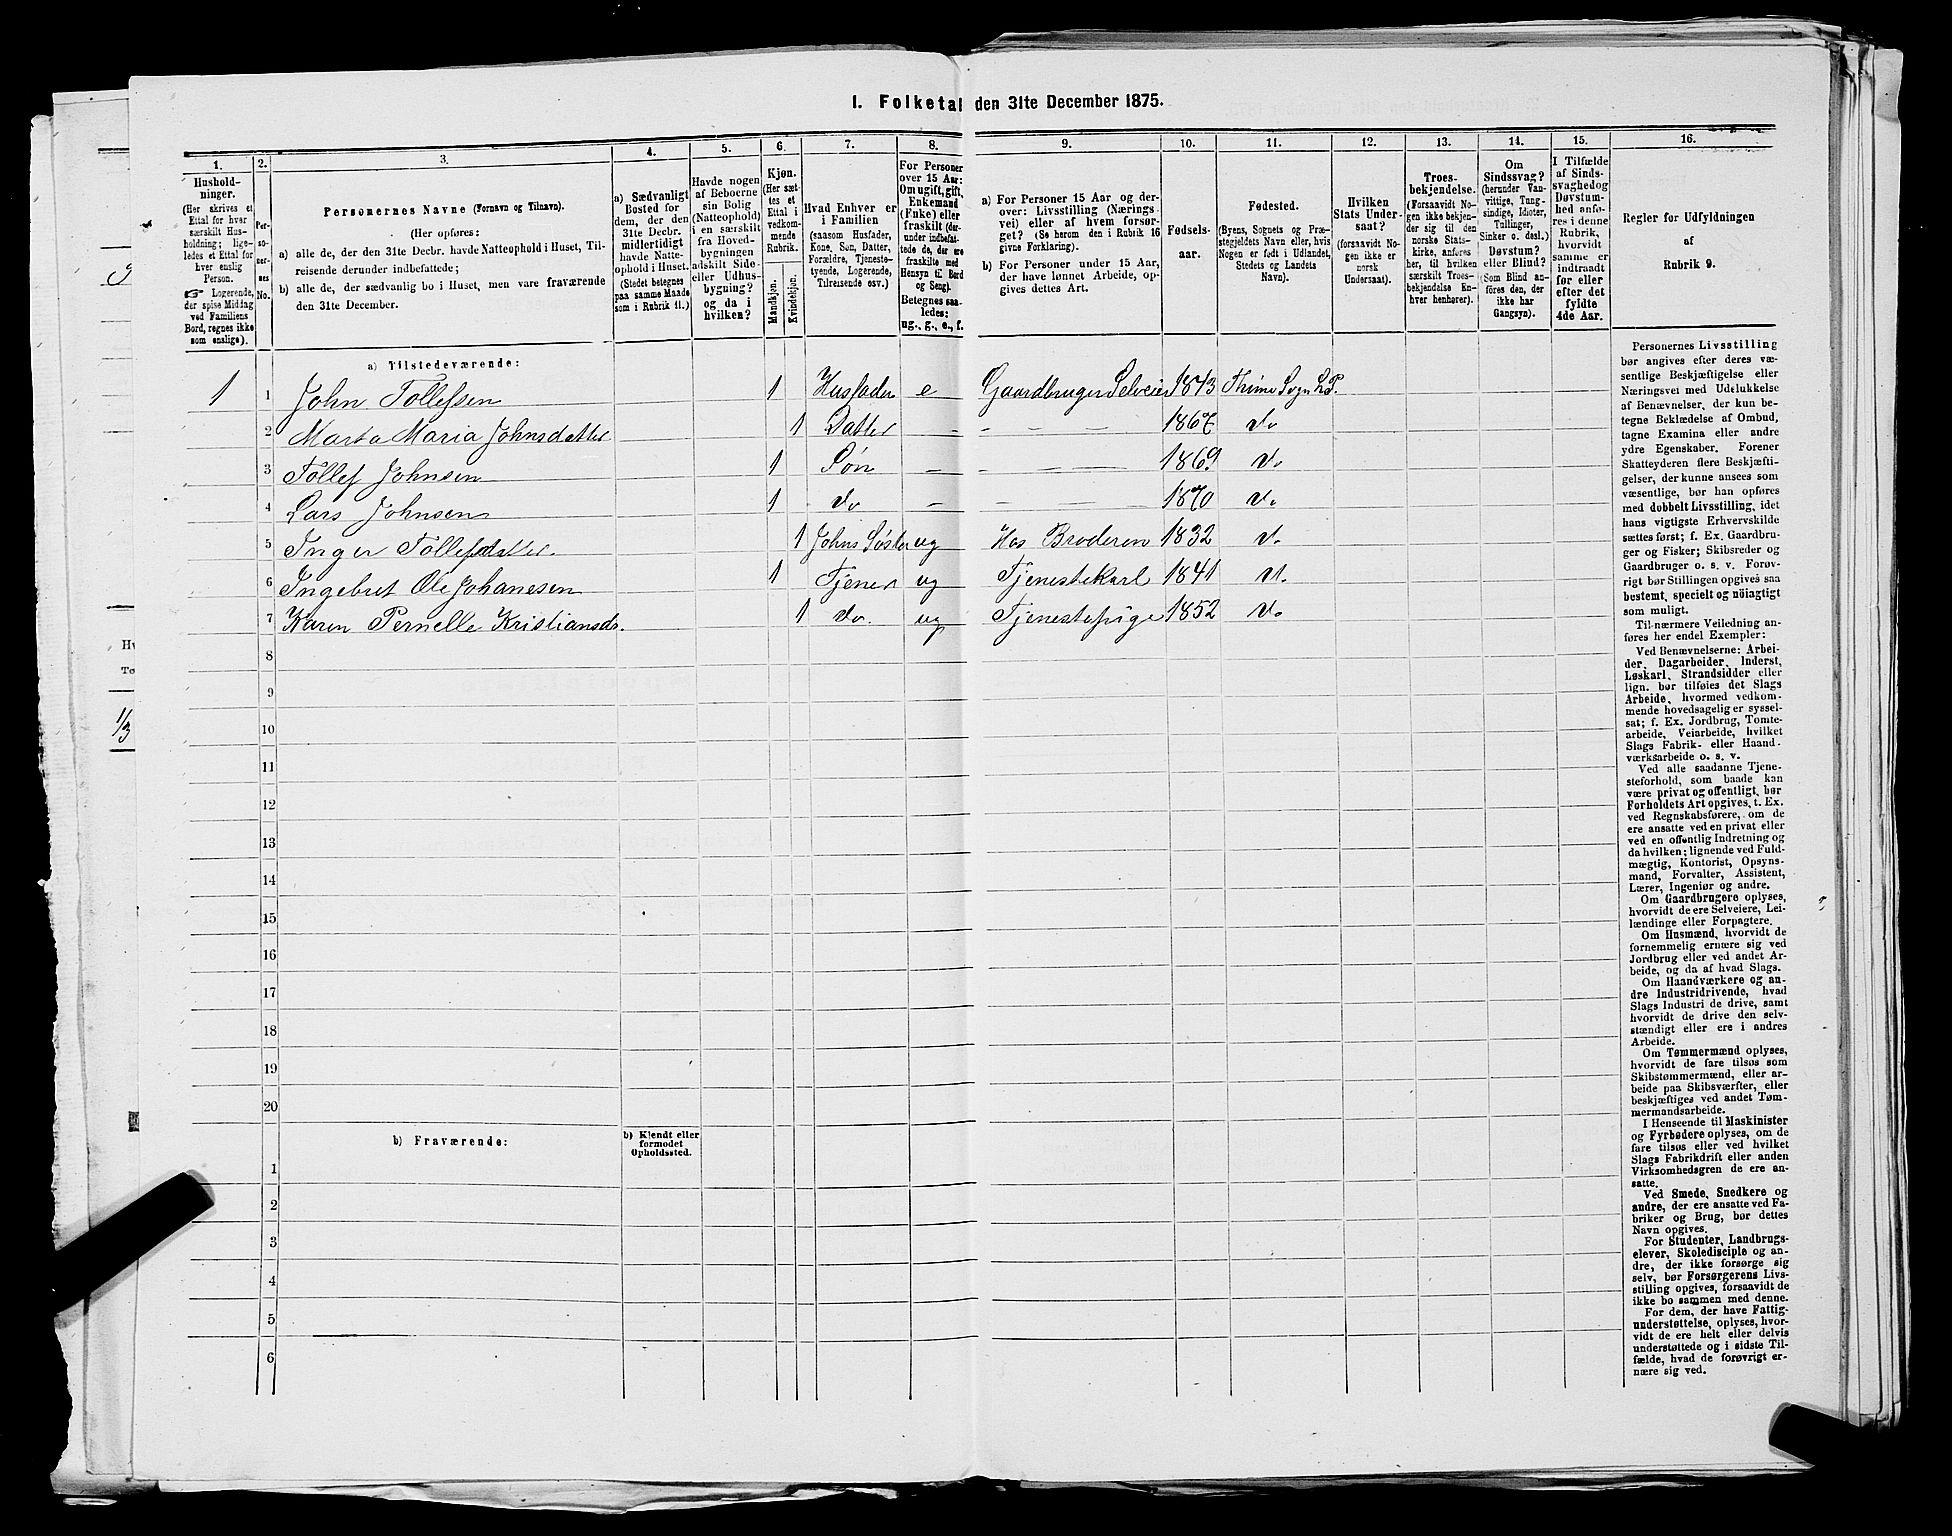 I. Folketal den 31te December 1875.
1. 2. 3. 4. 5. 6. 7. 8. 9. 10. 11. 12. 13. 14. 15. 16.
Hushold-
ninger.
(Her skrives et
Ettal for hver
særskilt Hus-
holdning; lige-
ledes et Ettal for
hver enslig
Person.
☞ Logerende,
der spise Middag
ved Familiens
Bord, regnes ikke
som enslige).
Per-
so-
ner-
nes
No.
Personernes Navne (Fornavn og Tilnavn).
(Her opføres:
a) alle de, der den 31te Decbr. havde Natteophold i Huset, Til-
reisende derunder indbefattede;
b) alle de, der sædvanlig bo i Huset, men vare fraværende
den 31te December.
a) Sædvanligt
Bosted for
dem, der den
31te Decbr.
midlertidigt
havde Natte-
ophold i Huset.
(Stedet betegnes
paa samme Maade
som i Rubrik 11.)
Havde nogen
af Beboerne
sin Bolig
(Natteophold)
i en særskilt
fra Hoved-
bygningen
adskilt Side-
eller Udhus-
bygning?
og da i
hvilken?
Kjøn.
(Her sæt-
tes et
Ettal i
vedkom-
mende
Rubrik.
Mandkjøn.
Kvindekjøn.
Hvad Enhver er
i Familien
(saasom Husfader,
Kone, Søn, Datter,
Forældre, Tjeneste-
tyende, Logerende,
Tilreisende osv.)
For Personer
over 15 Aar:
Om ugift, gift,
Enkemand
(Enke) eller
fraskilt (der-
under indbefat-
tede de, der ere
fraskilte med
Hensyn til Bord
og Seng).
Betegnes saa-
ledes:
ug., g., e., f.
a) For Personer 15 Aar og der-
over: Livsstilling (Nærings-
vei) eller af hvem forsør-
get? (Se herom den i Rubrik 16
givne Forklaring).
b) For Personer under 15 Aar,
der have lønnet Arbeide, op-
gives dettes Art.
Fødsels-
aar.
Fødested.
(Byens, Sognets og Præ-
stegjeldets Navn eller, hvis
Nogen er født i Udlandet,
Stedets og Landets
Navn).
Hvilken
Stats Under-
saat?
(forsaavidt No-
gen ikke er
norsk
Undersaat).
Troes-
bekjendelse.
(Forsaavidt No-
gen ikke bekjen-
der sig til den
norske Stats-
kirke, anføres
her, til hvilken
særskilt Troes-
bekjendelse En-
hver henhører).
Om
Sindssvag?
(herunder Van-
vittige, Tung-
sindige, Idioter,
Tullinger,
Sinker o. desl.)
Døvstum?
eller Blind?
(Som Blind an-
føres den, der
ikke har
Gangsyn).
I Tilfælde
af Sinds-
svaghed og
Døvstum-
hed anfø-
res i denne
Rubrik,
hvorvidt
samme er
indtraadt
før eller
efter det
fyldte
4de Aar.
Regler for Udfyldningen
af
Rubrik 9.
a) Tilstedeværende:
1 1 John Tollefsen 1 Husfader e Gaardbruger Selveier 1843 Thime Sogn L. P.
2 Marta Maria Johnsdatter 1 Datter 1867 do
3 Tollef Johnsen 1 Søn 1869 do
4 Lars Johnsen 1 do 1870 do
5 Inger Tollefsdatter 1 Johns Søster ug Hos Broderen 1832 do
6 Ingebret Ole Johanesen 1 Tjener ug Tjenestekarl 1841 do
7 Karen Pernelle Kristiansdr. 1 do. ug Tjenestepige 1852 do
8
9
10
11
12
13
14
15
16
17
18
19
20
b) Fraværende:
b) Kjendt eller
formodet
Opholdssted.
1
2
3
4
5
6
Personernes Livsstilling
bør angives efter deres væ-
sentlige Beskjæftigelse eller
Næringsvei med Udelukkelse
af Benævnelser, der kun be-
tegne Beklædelse af Ombud,
tagne Examina eller andre
ydre Egenskaber. Forener
Skatteyderen flere Beskjæfti-
gelser, der kunne ansees som
væsentlige, bør han opføres
med dobbelt Livsstilling, idet
hans vigtigste Erhvervskilde
sættes først; f. Ex. Gaardbru-
ger og Fisker; Skibsreder og
Gaardbruger o. s. v. Forøv-
rigt bør Stillingen opgives saa
bestemt, specielt og nöiagtigt
som muligt.
Til nærmere Veiledning an-
føres her endel Exempler:
Ved Benævnelserne: Arbei-
der, Dagarbeider, Inderst,
Løskarl, Strandsidder eller
lign. bør tilføies det Slags
Arbeide, hvormed vedkom-
mende hovedsagelig er syssel-
sat; f. Ex. Jordbrug, Tomte-
arbeide, Veiarbeide, hvilket
Slags Fabrik- eller Haand-
værksarbeide o. s. v.
Ved alle saadanne Tjene-
steforhold, som baade kan
være privat og offentligt, bør
Forholdets Art opgives, t. Ex.
ved Regnskabsførere, om de
ere ansatte ved en privat eller
ved en offentlig Indretning og
da hvilken; lignende ved Fuld-
mægtig, Kontorist, Opsyns-
mand, Forvalter, Assistent,
Lærer, Ingeniør og andre.
Om Gaardbrugere oplyses,
hvorvidt de ere Selveiere, Lei-
lændinge eller Forpagtere.
Om Husmænd, hvorvidt de
fornemmelig ernære sig ved
Jordbrug eller ved andet Ar-
beide, og da af hvad Slags.
Om Haandværkere og an-
dre Industridrivende, hvad
Slags Industri de drive, samt
hvorvidt de drive den selv-
stændigt eller ere i andres
Arbeide.
Om Tømmermænd oplyses,
hvorvidt de fare tilsøs som
Skibstømmermænd, eller ar-
beide paa Skibsværfter, eller
beskjæftiges ved andet Tøm-
mermandsarbeide.
I Henseende til Maskinister
og Fyrbødere oplyses, om de
fare tilsøs eller ved hvilket
Slags Fabrikdrift eller anden
Virksomhedsgren de ere an-
satte.
Ved Smede, Snedkere og
andre, der ere ansatte ved Fa-
briker og Brug, bør dettes
Navn opgives.
For Studenter, Landbrugs-
elever, Skoledisciple og an-
dre, der ikke forsørge sig
selv, bør Forsørgerens Livs-
stilling opgives, forsaavidt de
ikke bo sammen med denne.
For dem, der have Fattig-
understøttelse, oplyses, hvor-
vidt de ere helt eller delvis
understøttede og i sidste Til-
fælde, hvad de forøvrigt er-
nære sig ved.